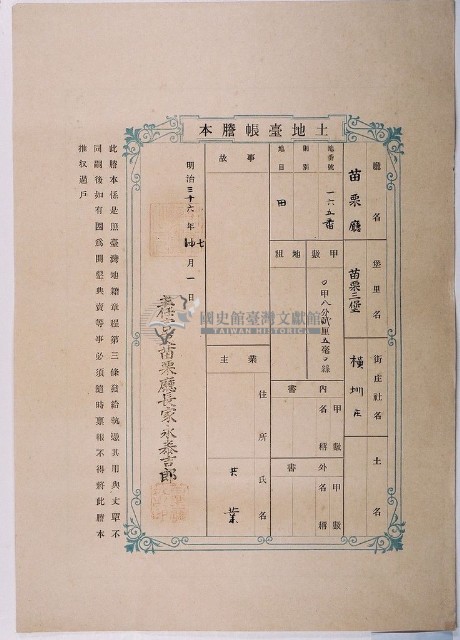 土地臺帳謄本
廳名 苗栗廳
堡里名 苗栗三堡
街庄社名 横圳庄
土名
地番號 一六五番
則別
地目 田
甲數 〇甲八分貳厘五毫〇絲
地租
內書 名稱 甲數
外書 名稱 甲數
事故
業主 住所 氏名
明治三十六年七月一日
苗栗廳長家永泰吉郎
此謄本係是照臺灣地籍章程第三條發給執憑其用與丈單不
同嗣後如有因爲開墾典賣等事必須隨時稟報不得將此謄本
推收過戶
國史館臺灣文獻館
TAIWAN HISTORICA